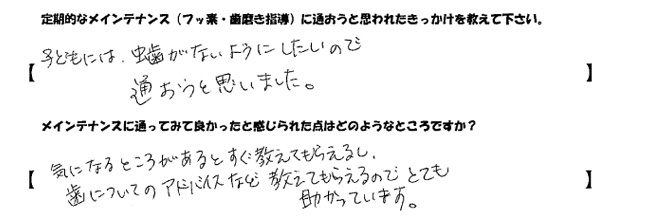 定期的なメインテナンス（フッ素・歯磨き指導）に通おうと思われたきっかけを教えて下さい。
子どもには、虫歯がないようにしたいので
【 通おうと思いました。 】
メインテナンスに通ってみて良かったと感じられた点はどのようなところですか？
気になるところがあるとすぐ教えてもらえるし、
【 歯についてのアドバイスなど教えてもらえるのでとても 】
助かっています。